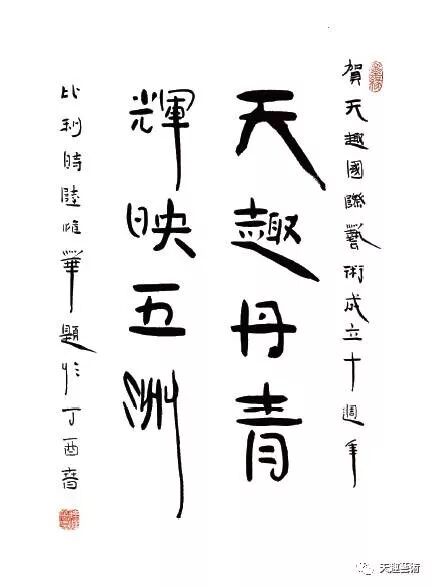 賀天趣國際藝術成立十週年
天趣丹青
輝映五洲
比利時陸惟華題於丁酉春
天趣藝術